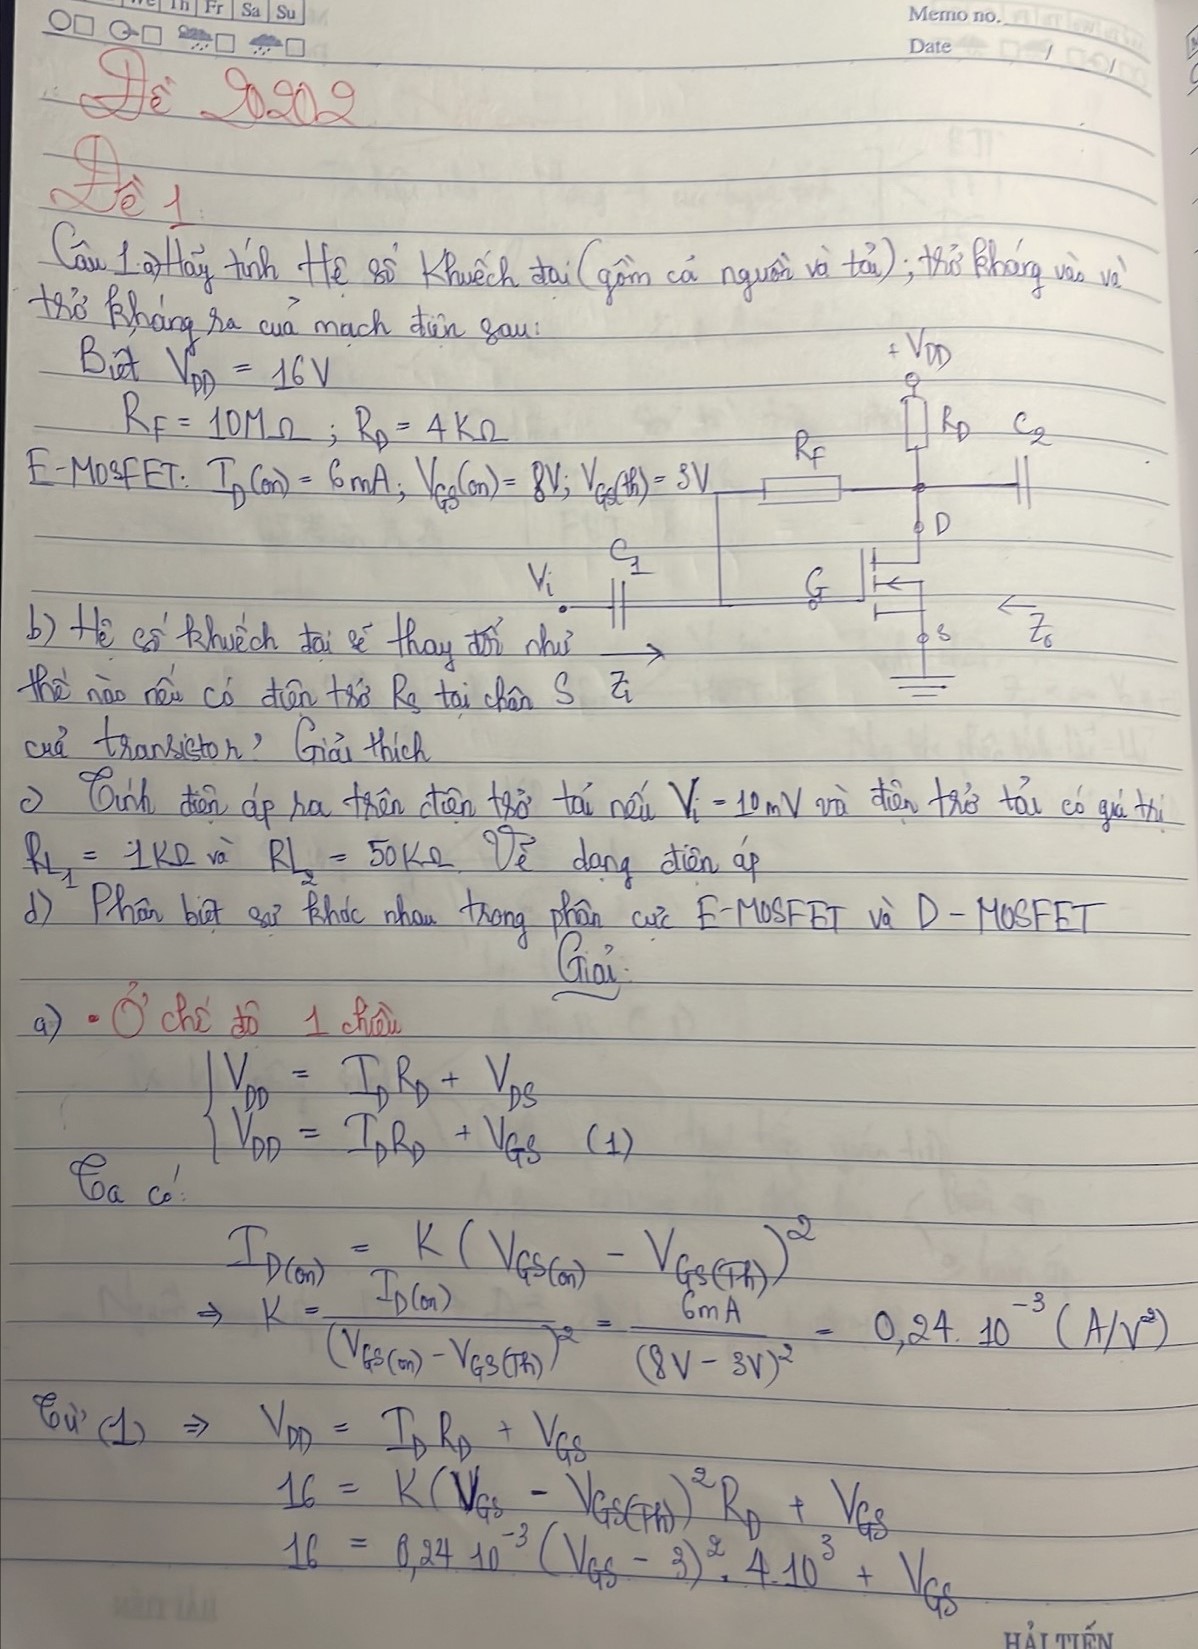 Th Fr Sa Su
Memo no.
Date / /
Đề 20202
Đề 1:
Câu 1. a) Hãy tính Hệ số Khuếch đại (gồm cả nguồn và tải); trở kháng vào và
trở kháng ra của mạch điện sau:
Biết V_DD = 16V
+ V_DD
R_F = 10MΩ ; R_D = 4KΩ
R_F R_D C_2
E-MOSFET: I_D(on) = 6mA; V_GS(on) = 8V; V_GS(th) = 3V
D
Vi C_1 G
S Z_o
b) Hệ số khuếch đại sẽ thay đổi như
thế nào nếu có điện trở R_S tại chân S Z_i
của transistor? Giải thích
c) Tính điện áp ra trên điện trở tải nếu V_i = 10mV và điện trở tải có giá trị
RL_1 = 1KΩ và RL_2 = 50KΩ. Vẽ dạng điện áp
d) Phân biệt sự khác nhau trong phân cực E-MOSFET và D-MOSFET
Giải:
a) • Ở chế độ 1 chiều
V_DD = I_D R_D + V_DS
V_DD = I_D R_D + V_GS (1)
Ta có:
I_D(on) = K (V_GS(on) - V_GS(Th))^2
⇒ K = I_D(on) / (V_GS(on) - V_GS(Th))^2 = 6mA / (8V - 3V)^2 = 0,24. 10^-3 (A/V^2)
Từ (1) ⇒ V_DD = I_D R_D + V_GS
16 = K (V_GS - V_GS(Th))^2 R_D + V_GS
16 = 0,24 10^-3 (V_GS - 3)^2 . 4.10^3 + V_GS
HẢI TIẾN